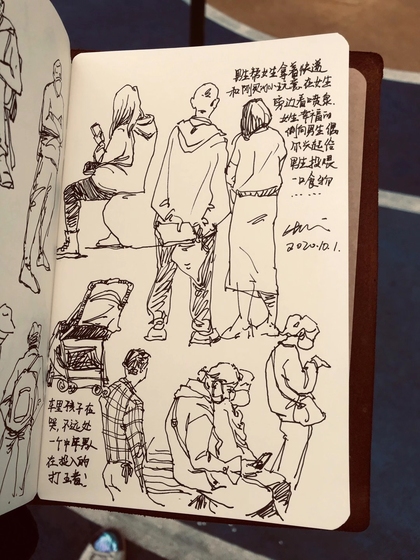 男生替女生拿着快递
和刚买的小玩意，在女生
边看喷泉
女生幸福的
倚向男生偶
尔兴起给
男生投喂
一口食物
……
2020.10.1.
车里孩子在
哭，不远处
一个中年男
在投入的
打